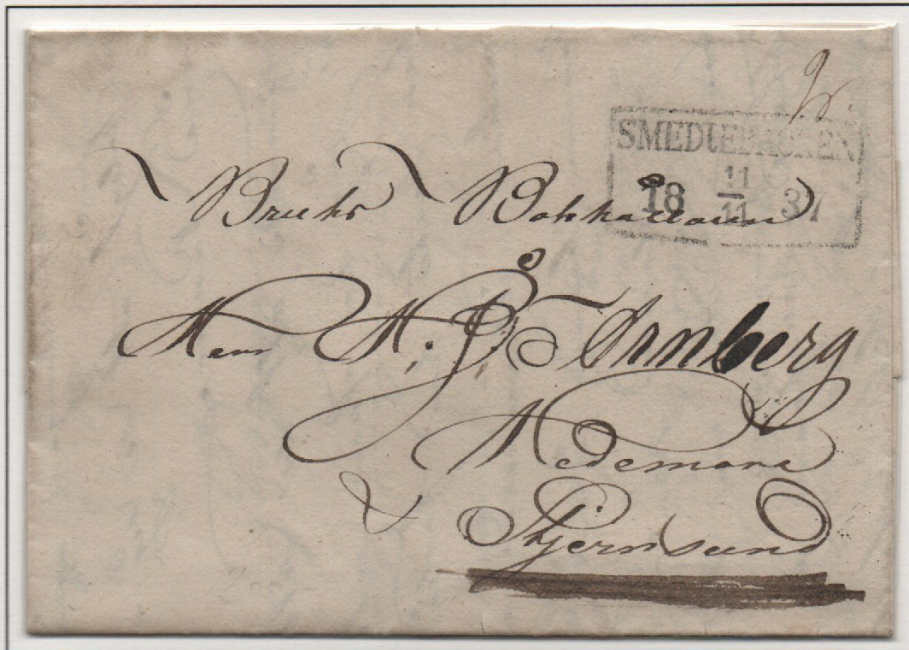 SMEDIEBACKEN
11
18 11 37
Bruks Bokhållaren
Herr H. P. Arnberg
Hedemora
& Stjernsund